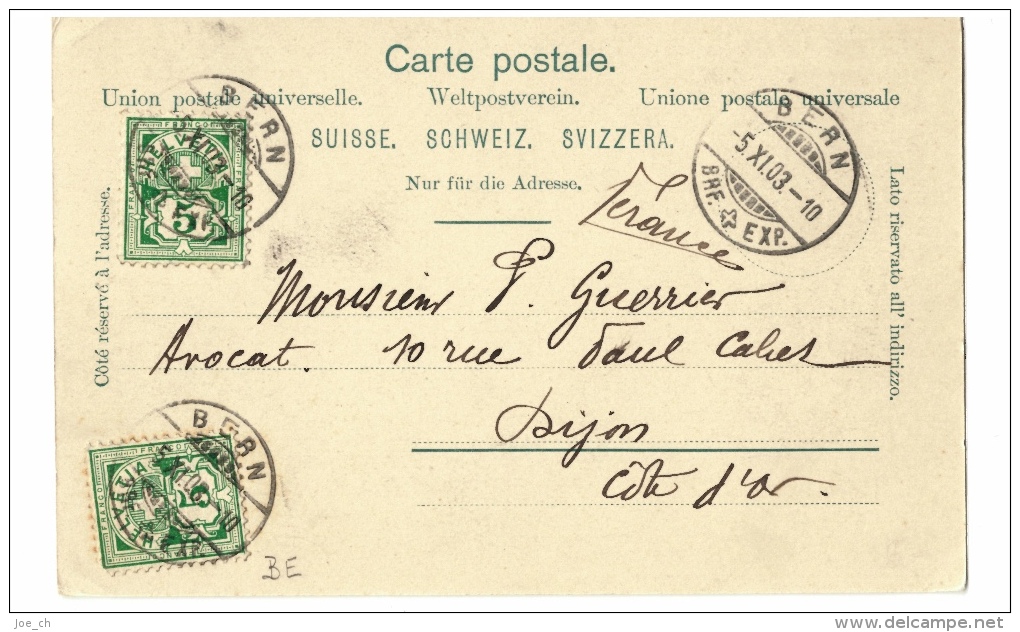 Carte postale.
Union postale universelle. Weltpostverein. Unione postale universale
SUISSE. SCHWEIZ. SVIZZERA.
Nur für die Adresse.
Côté réservé à l'adresse.
Lato riservato all' indirizzo.
BERN
-5.XI.03.-10
BRF. EXP.
France
Monsieur P. Guerrier
Avocat. 10 rue Paul Cabet
Dijon
Côte d'Or.
FRANCO
HELVETIA
5
BERN
FRANCO
HELVETIA
5
BERN
BE
Joe_ch
delcampe.net